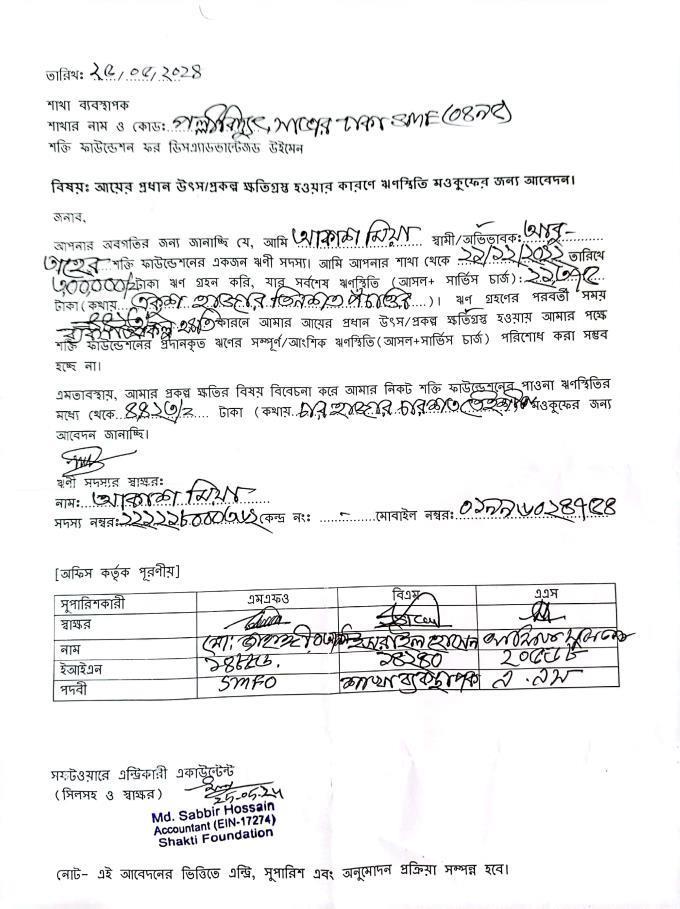 তারিখঃ ২৫/০৫/২০২৪
শাখা ব্যবস্থাপক
শাখার নাম ও কোডঃ পল্লীবিদ্যুৎ, সাভার ঢাকা SME (০৪৯৫)
শক্তি ফাউন্ডেশন ফর ডিসএ্যাডভান্টেজড উইমেন
বিষয়ঃ আয়ের প্রধান উৎস/প্রকল্প ক্ষতিগ্রস্থ হওয়ার কারণে ঋণস্থিতি মওকুফের জন্য আবেদন।
জনাব,
আপনার অবগতির জন্য জানাচ্ছি যে, আমি আকাশ মিয়া স্বামী/অভিভাবকঃ আবু-
তাহের শক্তি ফাউন্ডেশনের একজন ঋণী সদস্য। আমি আপনার শাখা থেকে ২২/১২/২০২২ তারিখে
টাকা ঋণ গ্রহন করি, যার সর্বশেষ ঋণস্থিতি (আসল+ সার্ভিস চার্জ):
টাকা (কথায় হাজার তিনশত পঁচাত্তর)। ঋণ গ্রহণের পরবর্তী সময়
ক্ষতি কারনে আমার আয়ের প্রধান উৎস/প্রকল্প ক্ষতিগ্রস্থ হওয়ায় আমার পক্ষে
শক্তি ফাউন্ডেশনের প্রদানকৃত ঋণের সম্পূর্ণ/আংশিক ঋণস্থিতি(আসল+সার্ভিস চার্জ) পরিশোধ করা সম্ভব
হচ্ছে না।
এমতাবস্থায়, আমার প্রকল্প ক্ষতির বিষয় বিবেচনা করে আমার নিকট শক্তি ফাউন্ডেশনের পাওনা ঋণস্থিতির
মধ্যে থেকে টাকা (কথায় চার হাজার চারশত মওকুফের জন্য
আবেদন জানাচ্ছি।
ঋণী সদস্যর স্বাক্ষর:
নাম: আকাশ মিয়া
সদস্য নম্বরঃ কেন্দ্র নং: - মোবাইল নম্বরঃ
[অফিস কর্তৃক পূরণীয়]
সুপারিশকারী এমএফও বিএম এএস
স্বাক্ষর
নাম মো: ইসরাইল হোসেন
ইআইএন ১৪২৪০
পদবী SMFO শাখা ব্যবস্থাপক এ.এস
সফটওয়ারে এন্ট্রিকারী একাউন্টেন্ট
(সিলসহ ও স্বাক্ষর) 25-05-24
Md. Sabbir Hossain
Accountant (EIN-17274)
Shakti Foundation
নোট- এই আবেদনের ভিত্তিতে এন্ট্রি, সুপারিশ এবং অনুমোদন প্রক্রিয়া সম্পন্ন হবে।